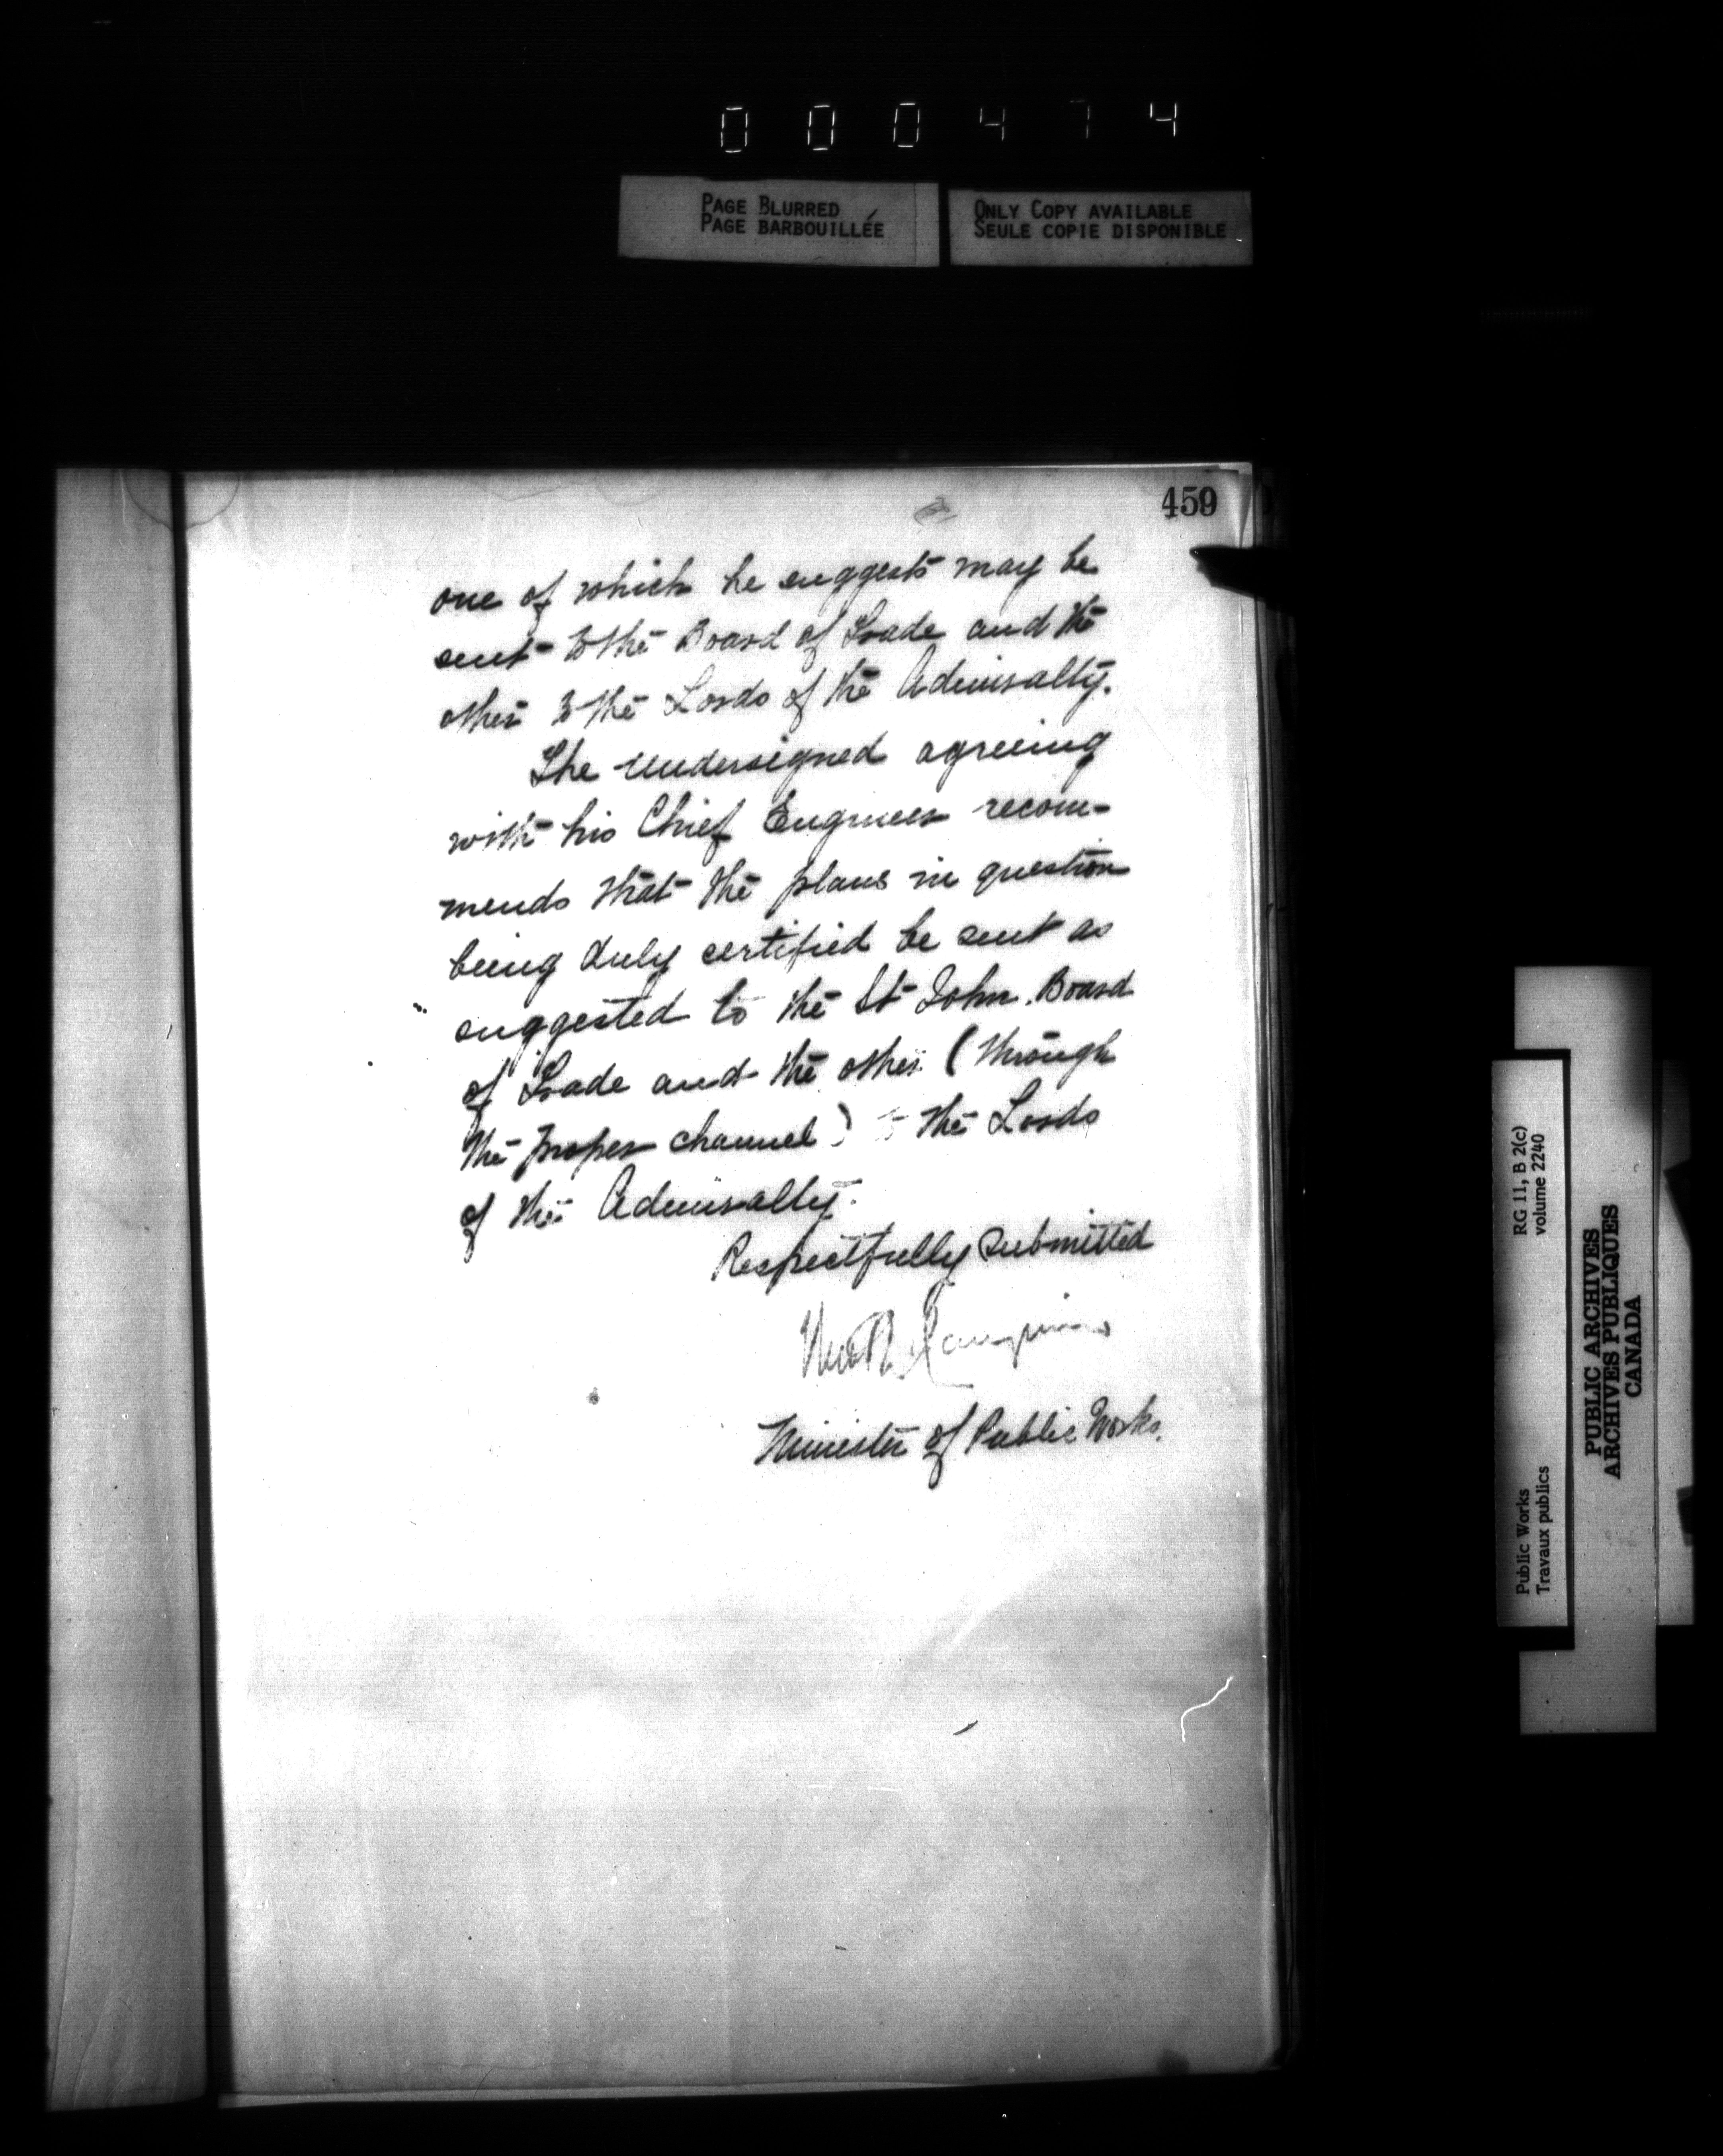 000474
PAGE BLURRED
PAGE BARBOUILLÉE
ONLY COPY AVAILABLE
SEULE COPIE DISPONIBLE
459
one of which he suggests may be
sent to the Board of Trade and the
other to the Lords of the Admiralty.
The undersigned agreeing
with his Chief Engineer recom-
mends that the plans in question
being duly certified be sent as
suggested to the St John Board
of Trade and the other (through
the proper channel) to the Lords
of the Admiralty.
Respectfully submitted
Minister of Public Works.
RG 11, B 2(c)
volume 2240
Public Works
Travaux publics
PUBLIC ARCHIVES
ARCHIVES PUBLIQUES
CANADA